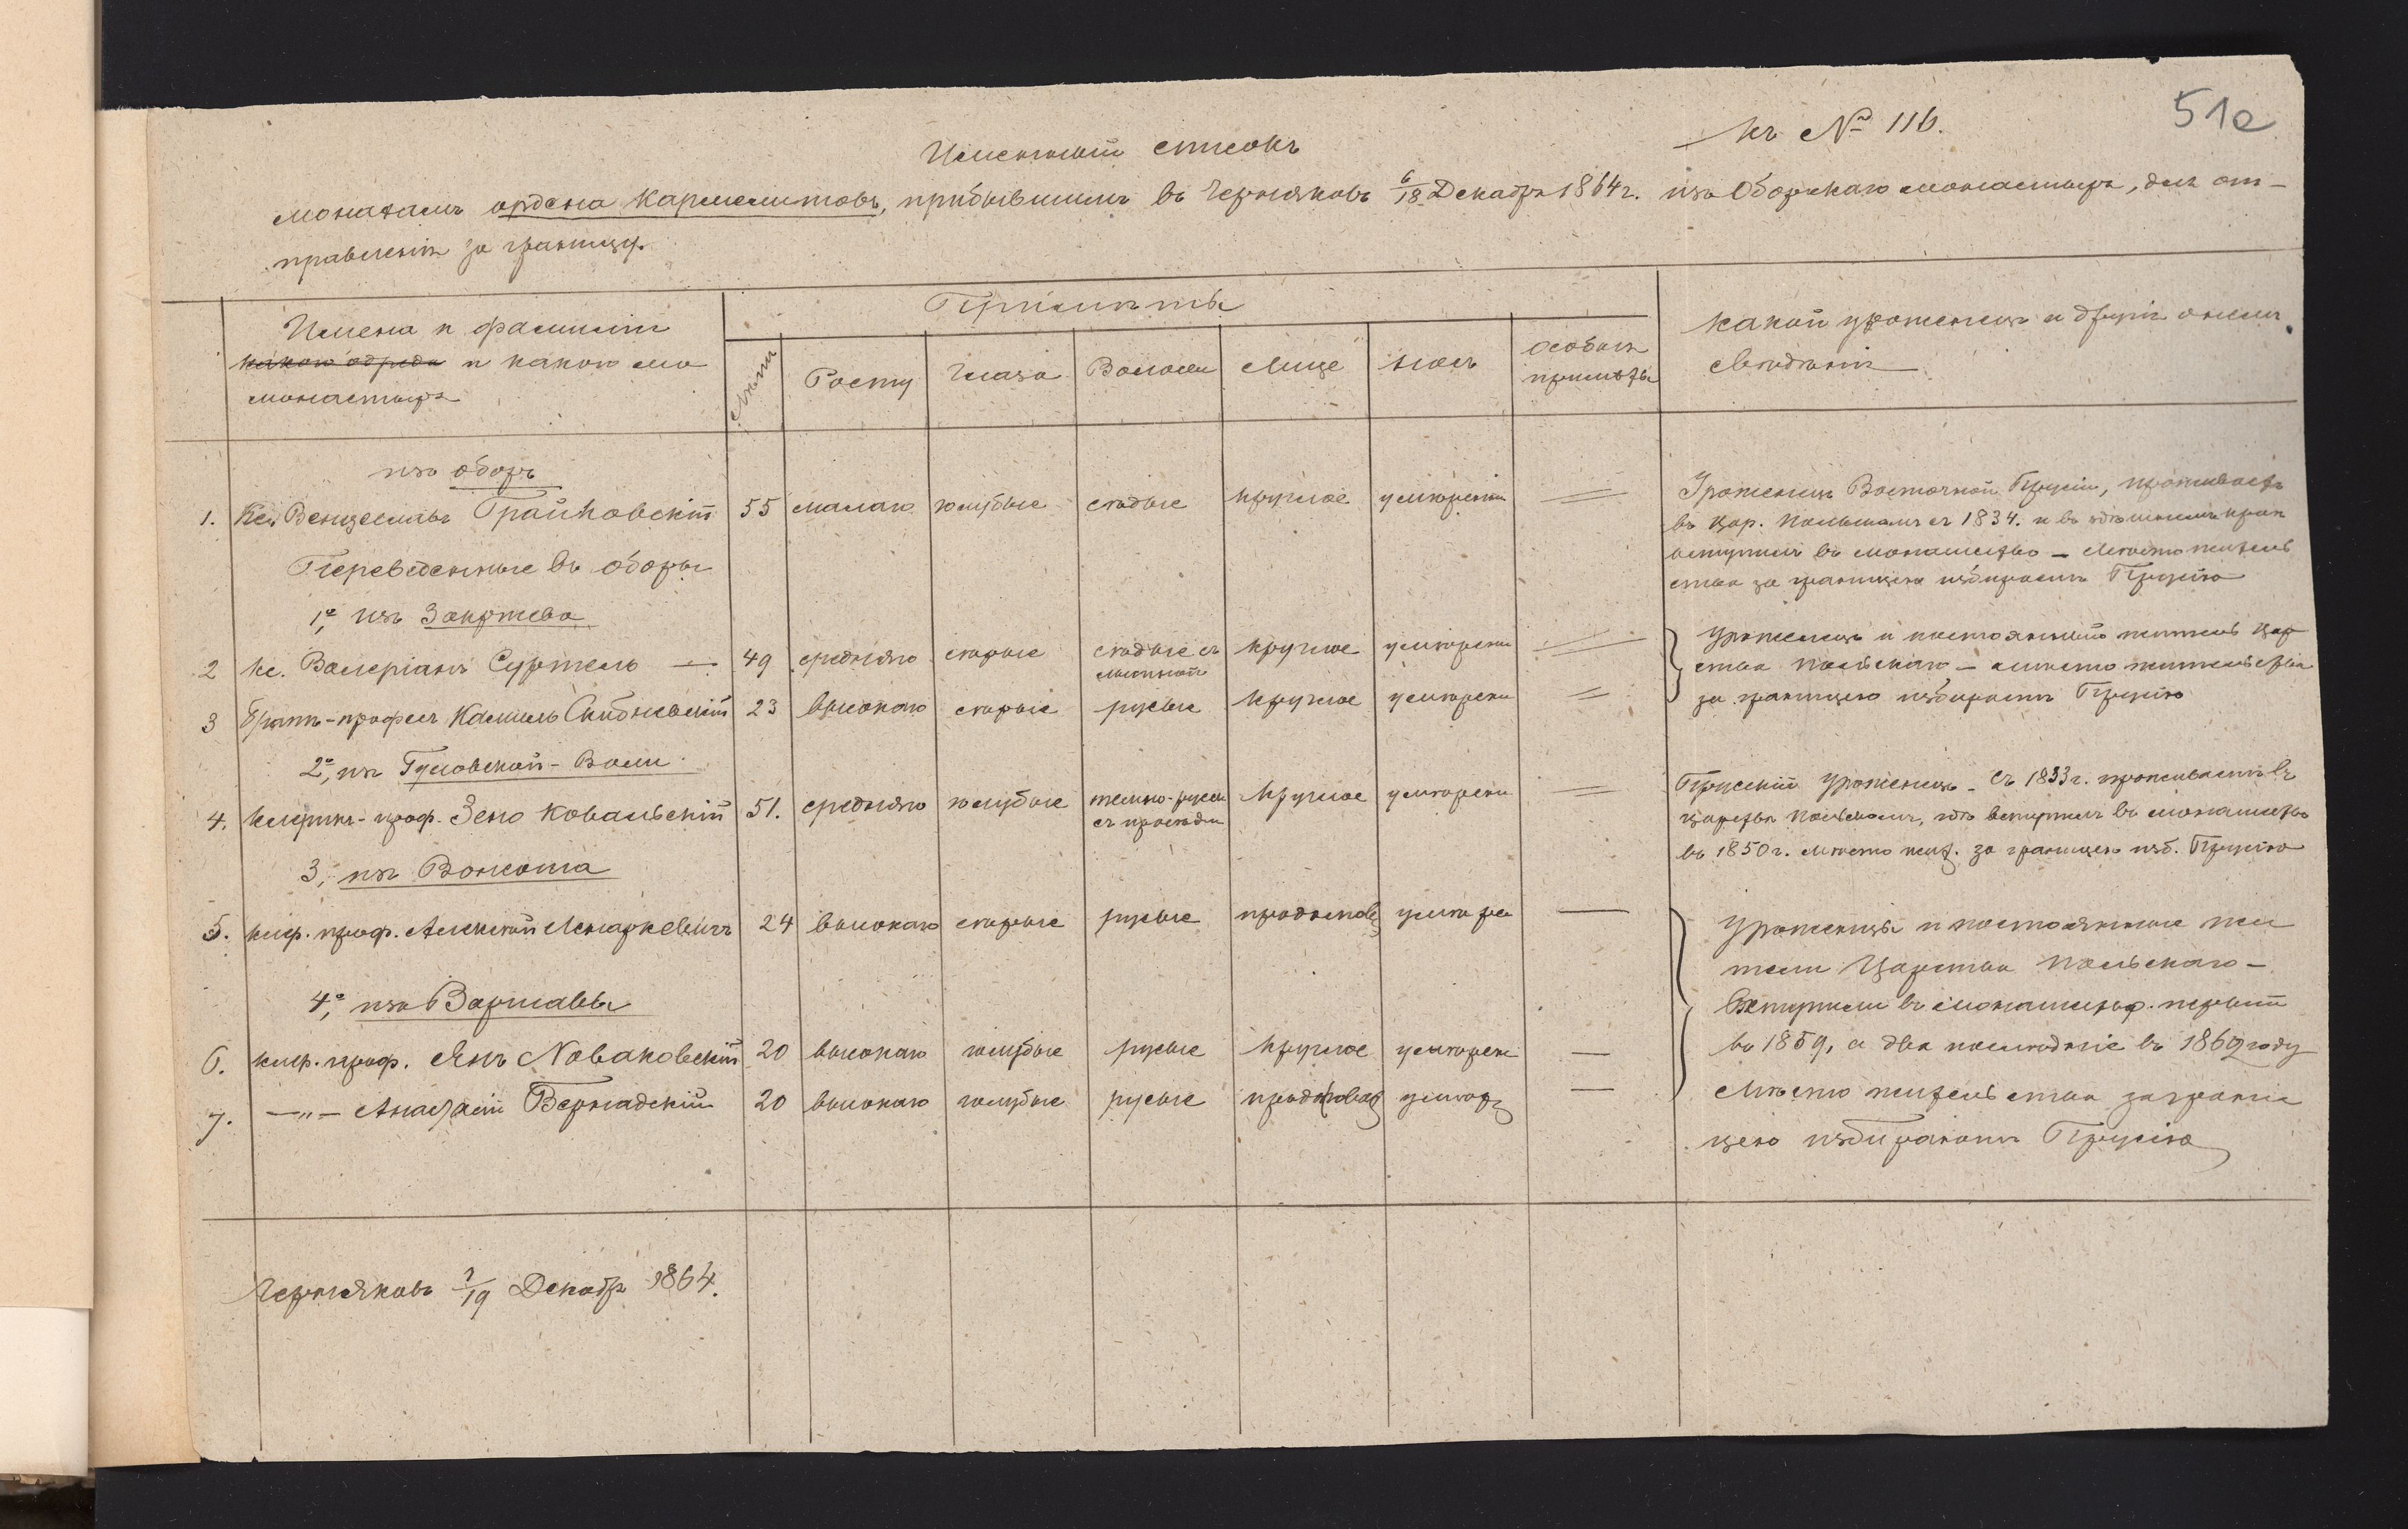 51a
къ № 116.
Именный списокъ
монахамъ ордена Кармелитовъ, прибывшимъ въ Черняковъ 6/18 Декабря 1864 г. изъ Оборскаго монастыря, для от-
правленія за границу.
Имена и фамиліи
какого обряда и какого мо
монастыря
Примѣты
Лѣта
Росту
Глаза
Волосы
Лице
Носъ
особыя
примѣты
Какой уроженецъ и другія о немъ
свѣдѣнія
изъ Оборъ
1. Кс. Венцеславъ Грайковскій 55 малаго голубые сѣдые круглое умѣренный =
Уроженецъ Восточной Пруссіи, проживаетъ
въ Цар. Польскомъ съ 1834. и въ здѣшнемъ краѣ
вступилъ въ монашество – Мѣсто житель
ства за границею избираетъ Пруссію
Переведенные въ Оборы
1е, изъ Закржева
2 кс. Валеріанъ Суржель — 49 средняго сѣрые сѣдые съ круглое умѣренный =
лысиной
3 Братъ-професъ Камиль Скибневскій 23 высокаго сѣрые русые круглое умѣренный =
Уроженецъ и постоянный житель Цар
ства Польскаго – мѣсто жительства
за границею избираетъ Пруссію
2е, изъ Гуловской-Воли
4. клерикъ-проф. Зено Ковальскій 51. средняго голубые темно-русые круглое умѣренный =
съ просѣдью
Прусскій уроженецъ – Съ 1833 г. проживаетъ въ
Царствѣ Польскомъ, гдѣ вступилъ въ монашество
въ 1850 г. Мѣсто жит. за границею изб. Пруссію
3, изъ Вонхоцка
5. клер. проф. Алексій Ленаркевичъ 24 высокаго сѣрые русые продолгов умѣре —
4е, изъ Варшавы
6. клер. проф. Янъ Новаковскій 20 высокаго голубые русые круглое умѣрен —
7. —"— Анастасій Бернадскій 20 высокаго голубые русые продолговат умѣр —
Уроженцы и постоянные жи
тели Царства Польскаго –
Вступили въ монашество. первый
въ 1859, а два послѣдніе въ 1862 году
Мѣсто жительства заграни
цею избираютъ Пруссію
Черняковъ 7/19 Декабр 1864.